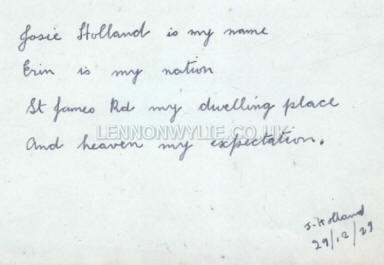 Josie Holland is my name
Erin is my nation
St James Rd my dwelling place
LENNONWYLIE.CO.UK
And heaven my expectation.
J. Holland
29/12/29